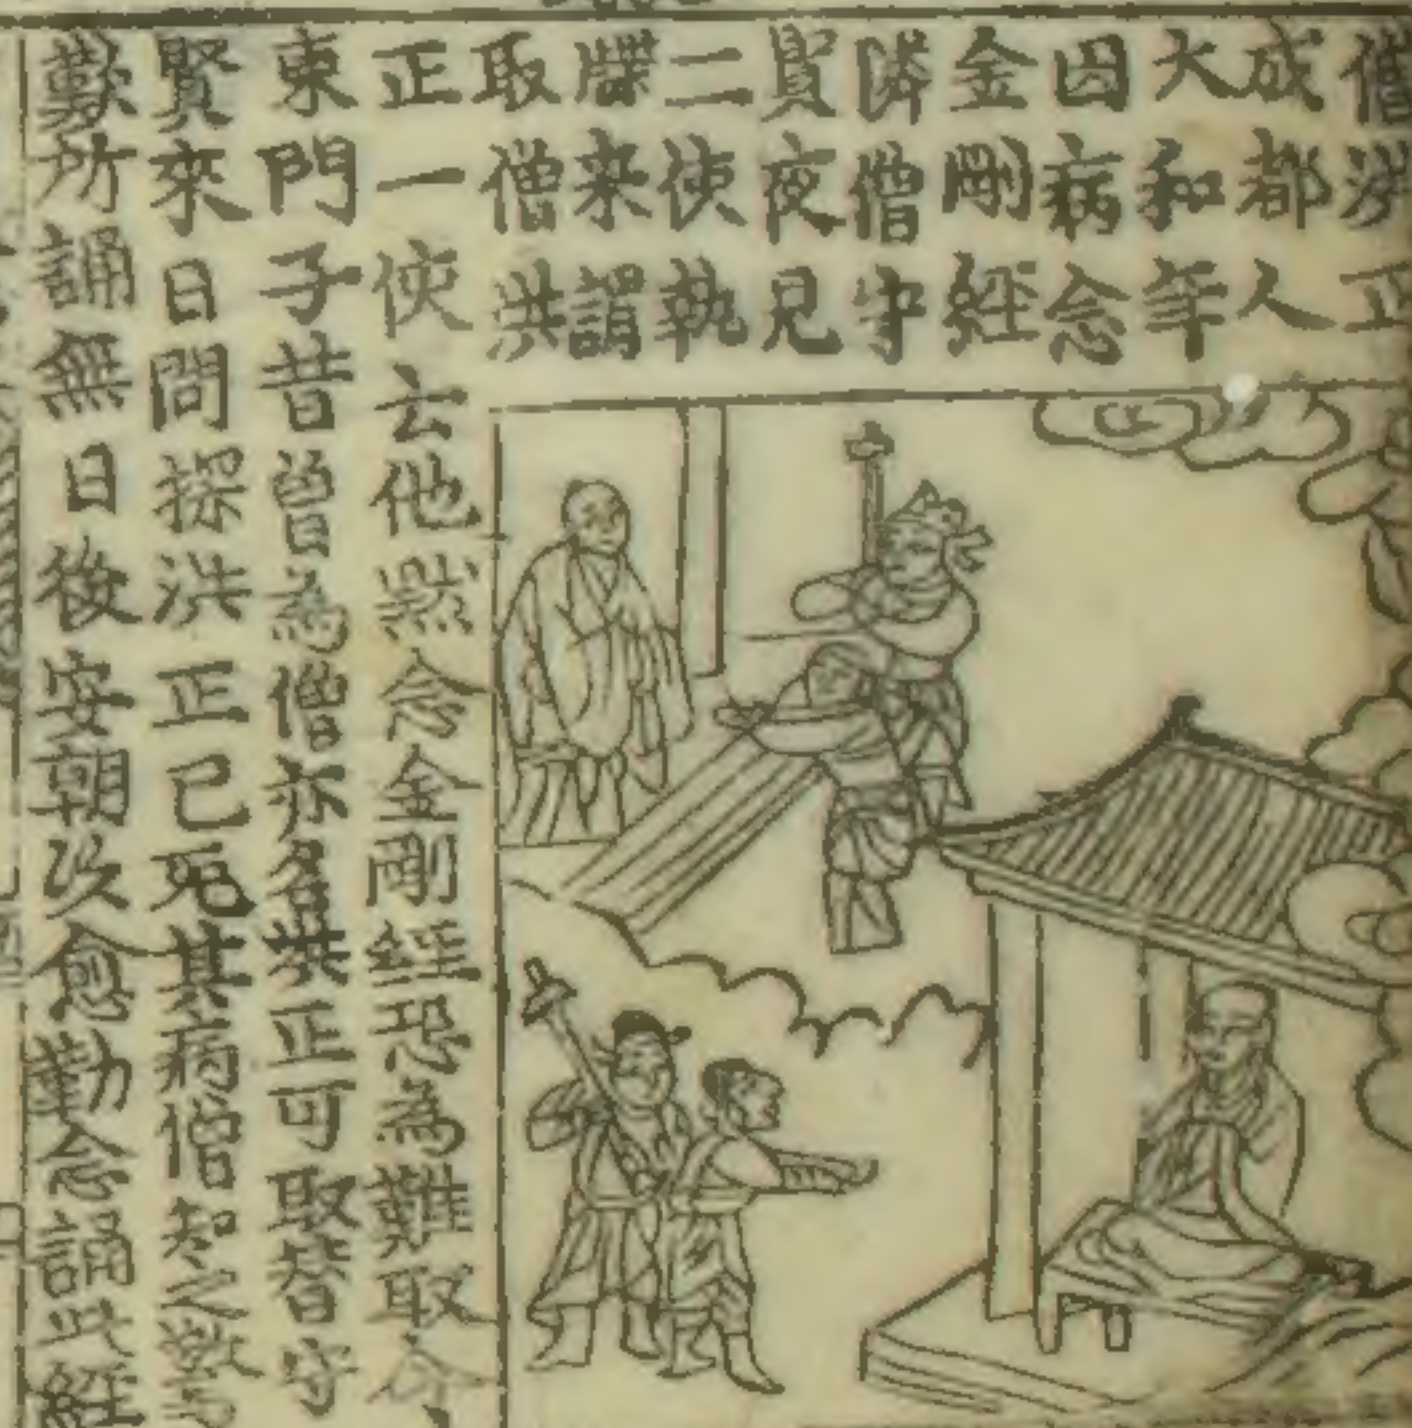 僧洪正
成都人
大和年
因病念
金剛經
隣僧守
賢夜見
二使執
牒来謂
取僧洪
正一使云他黙念金剛經恐為難取今
東門子昔曾為僧亦名洪正可取替守
賢來日問探洪正已死其病僧知之
歎所誦無日後安朝愈勤念誦此經